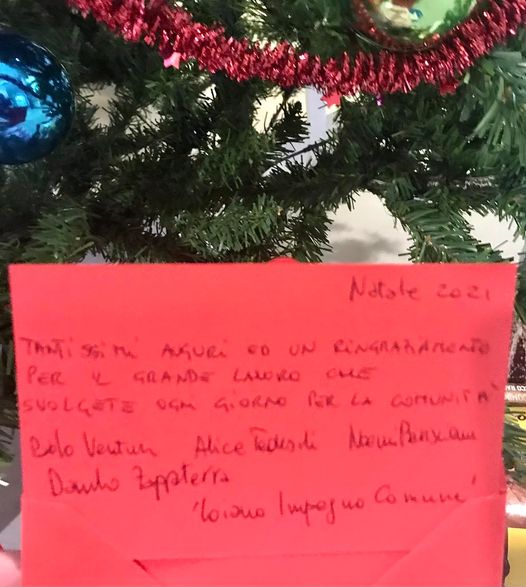 Natale 2021
TANTISSIMI AUGURI ED UN RINGRAZIAMENTO
PER IL GRANDE LAVORO CHE
SVOLGETE OGNI GIORNO PER LA COMUNITÀ
Ventura Alice Tedeschi
Danilo Zappaterra
'Loiano Impegno Comune'